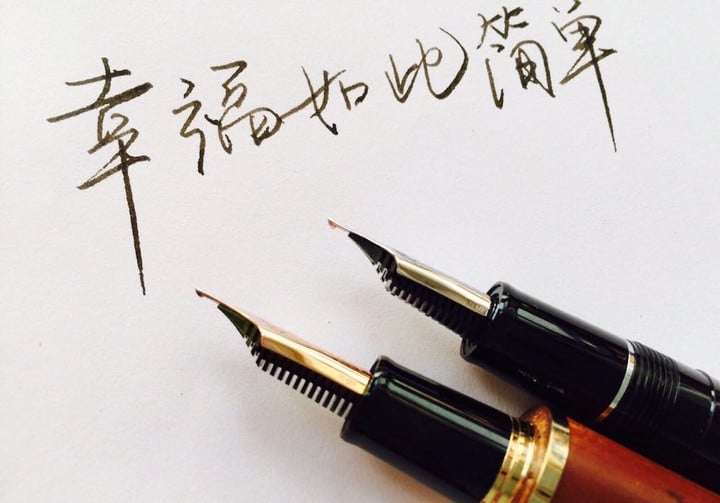 幸福如此简单